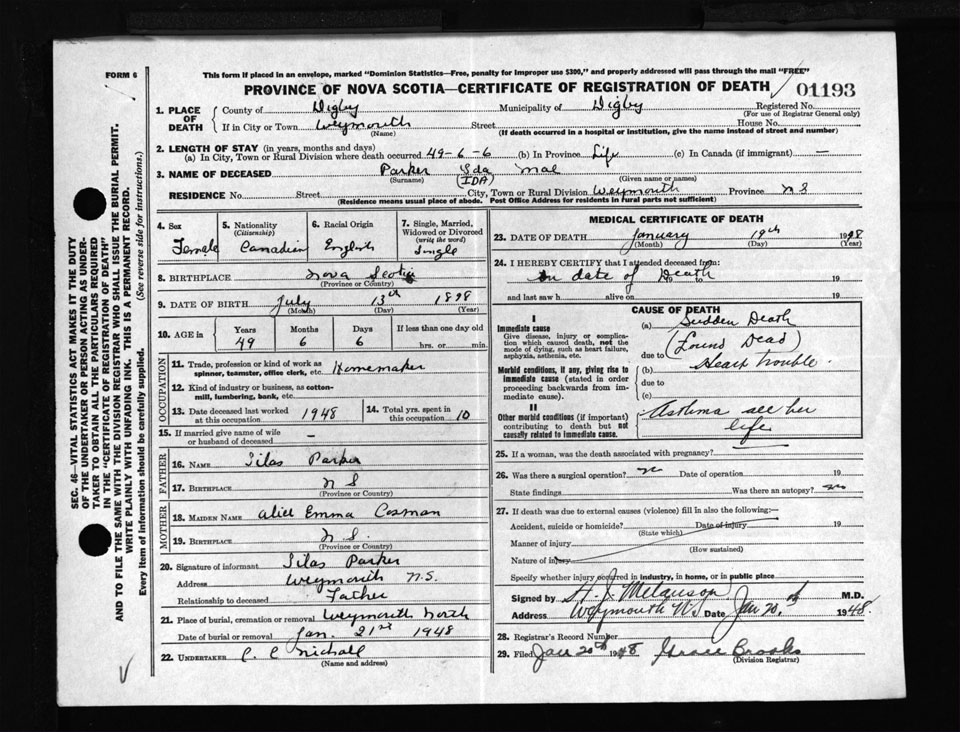 FORM 6
This form if placed in an envelope, marked "Dominion Statistics—Free, penalty for improper use $300," and properly addressed will pass through the mail "FREE"
PROVINCE OF NOVA SCOTIA—CERTIFICATE OF REGISTRATION OF DEATH
01193
SEC. 46—VITAL STATISTICS ACT MAKES IT THE DUTY
OF THE UNDERTAKER OR PERSON ACTING AS UNDER-
TAKER TO OBTAIN ALL THE PARTICULARS REQUIRED
IN THE "CERTIFICATE OF REGISTRATION OF DEATH"
AND TO FILE THE SAME WITH THE DIVISION REGISTRAR WHO SHALL ISSUE THE BURIAL PERMIT.
WRITE PLAINLY WITH UNFADING INK. THIS IS A PERMANENT RECORD.
Every item of Information should be carefully supplied. (See reverse side for instructions.)
1. PLACE OF DEATH
County of Digby Municipality of Digby Registered No.
(For use of Registrar General only)
If in City or Town Weymouth Street House No.
(Name) (If death occurred in a hospital or institution, give the name instead of street and number)
2. LENGTH OF STAY (in years, months and days)
(a) In City, Town or Rural Division where death occurred 49-6-6 (b) In Province Life (c) In Canada (if immigrant) —
3. NAME OF DECEASED Parker Ida Mae
(Surname) (IDA) (Given name or names)
RESIDENCE No. Street City, Town or Rural Division Weymouth Province N S
(Residence means usual place of abode. Post Office Address for residents in rural parts not sufficient)
4. Sex
Female
5. Nationality
(Citizenship)
Canadian
6. Racial Origin
English
7. Single, Married,
Widowed or Divorced
(write the word)
Single
8. BIRTHPLACE Nova Scotia
(Province or Country)
9. DATE OF BIRTH July 13th 1898
(Month) (Day) (Year)
10. AGE in Years Months Days If less than one day old
49 6 6 hrs. or min.
OCCUPATION
11. Trade, profession or kind of work as
spinner, teamster, office clerk, etc. Homemaker
12. Kind of industry or business, as cotton-
mill, lumbering, bank, etc.
13. Date deceased last worked
at this occupation 1948
14. Total yrs. spent in
this occupation 10
15. If married give name of wife
or husband of deceased —
FATHER
16. NAME Silas Parker
17. BIRTHPLACE N S
(Province or Country)
MOTHER
18. MAIDEN NAME Alice Emma Cosman
19. BIRTHPLACE N S.
(Province or Country)
20. Signature of informant Silas Parker
Address Weymouth N.S.
Relationship to deceased Father
21. Place of burial, cremation or removal Weymouth North
Date of burial or removal Jan. 21st 1948
22. UNDERTAKER C. C.
(Name and address)
MEDICAL CERTIFICATE OF DEATH
23. DATE OF DEATH January 19th 1948
(Month) (Day) (Year)
24. I HEREBY CERTIFY that I attended deceased from:
on date of Death 19 to 19
and last saw h alive on 19
CAUSE OF DEATH
I
Immediate cause
Give disease, injury or complica-
tion which caused death, not the
mode of dying, such as heart failure,
asphyxia, asthenia, etc.
(a) Sudden Death
(Found Dead)
due to
Morbid conditions, if any, giving rise to
immediate cause (stated in order
proceeding backwards from im-
mediate cause).
(b) Heart trouble.
due to
(c)
II
Other morbid conditions (if important)
contributing to death but not
causally related to immediate cause.
Asthma all her
life
25. If a woman, was the death associated with pregnancy?
26. Was there a surgical operation? no Date of operation 19
State findings Was there an autopsy? no
27. If death was due to external causes (violence) fill in also the following:—
Accident, suicide or homicide? Date of injury 19
(State which)
Manner of injury
(How sustained)
Nature of injury
Specify whether injury occurred in industry, in home, or in public place
Signed by H. J. Melanson M.D.
Address Weymouth N.S Date Jan 20.th 1948.
28. Registrar's Record Number
29. Filed Jan 20th 1948 Grace Brooks
(Division Registrar)